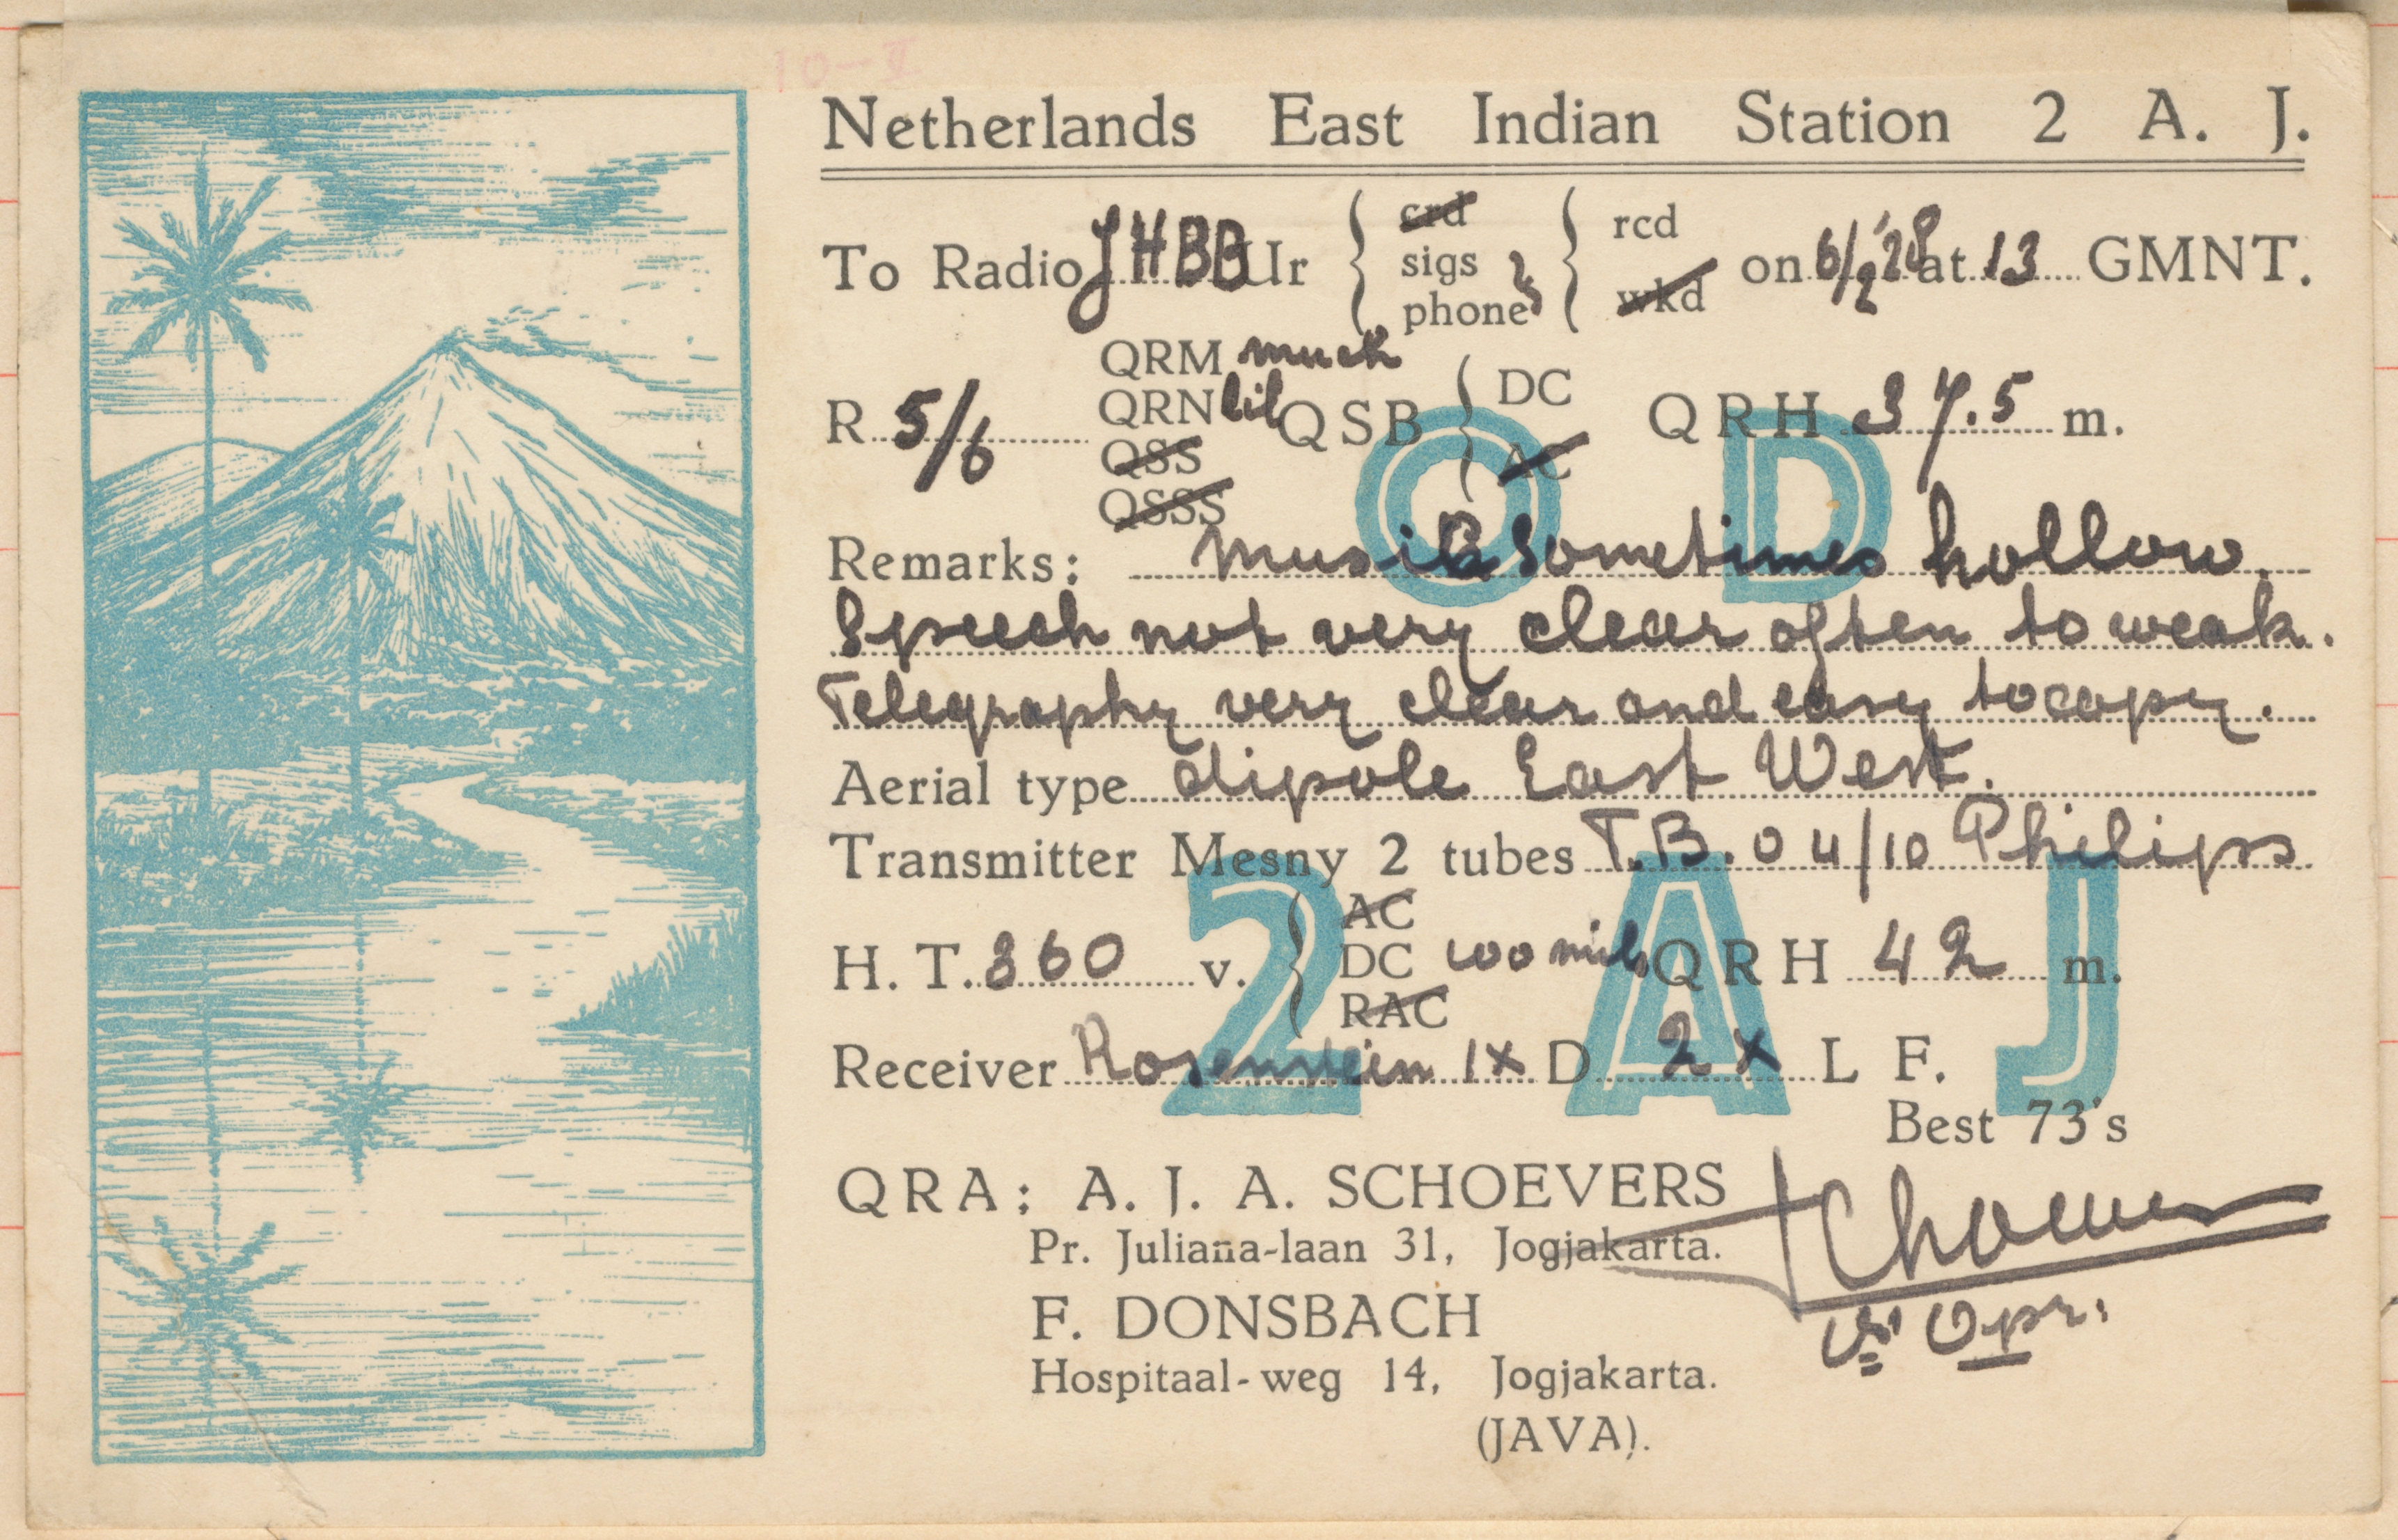 10-II
Netherlands East Indian Station 2 A. J.
To Radio JHBB Ur { crd sigs phone } { rcd wkd on 6/2 '28 at 13 GMNT.
R 5/6 QRM much QRN lil QSS QSSS QSB { DC AC QRH 37.5 m.
O D
Remarks: Musik sometimes hollow.
Speech not very clear often to weak.
Telegraphy very clear and easy to copy.
Aerial type dipole East West.
Transmitter Mesny 2 tubes T.B. 04/10 Philips
2 A J
H. T. 360 v. { AC DC RAC 100 mils QRH 42 m.
Receiver Rosenstein 1x D 2x L F.
Best 73's
QRA: A. J. A. SCHOEVERS
Pr. Juliana-laan 31, Jogjakarta.
Schoevers
F. DONSBACH
Opr.
Hospitaal-weg 14, Jogjakarta.
(JAVA).